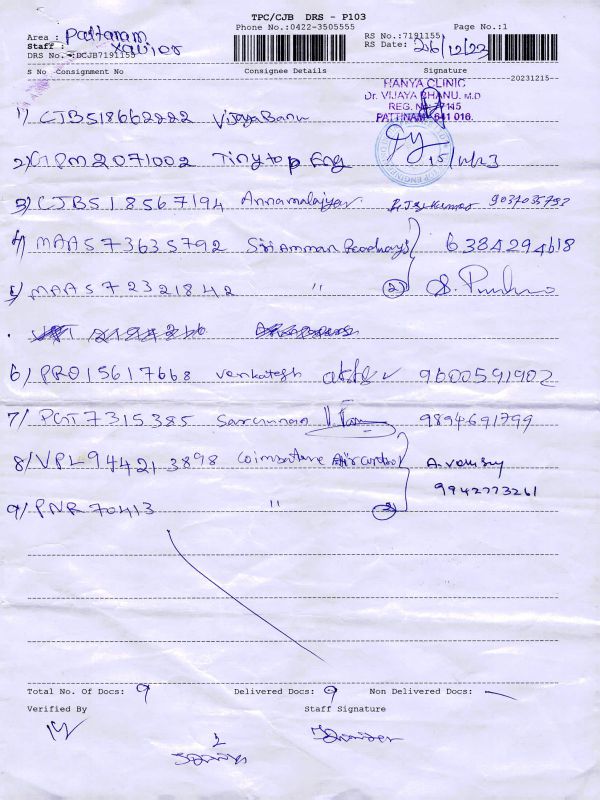 TPC/CJB DRS - P103
Phone No.:0422-3505555 Page No.:1
Area : Pattanam
Staff : Xavier
DRS No. :DCJB7191155
RS No.:7191155
RS Date: 26/12/23
S No Consignment No Consignee Details Signature
20231215
HANYA CLINIC
Dr. VIJAYA BHANU. M.D
REG. No 77145
PATTINAM 641 016.
1) CJB518662222 Vijaya Banu
2) GPM2071002 Tiny top Eng 15/12/23
3) CJB518567194 Annamalaiyar 9037035792
4) MAA573635792 Sri Amman 6384294618
5) MAA572321842 " (2)
6) PRO15617668 Venkatesh 9600591902
7) PGT7315385 Saravanan 9894691799
8) VPL944213898 Coimbatore Air control
9942773261
9) PNR70413 " (2)
Total No. Of Docs: 9 Delivered Docs: 9 Non Delivered Docs: —
Verified By Staff Signature